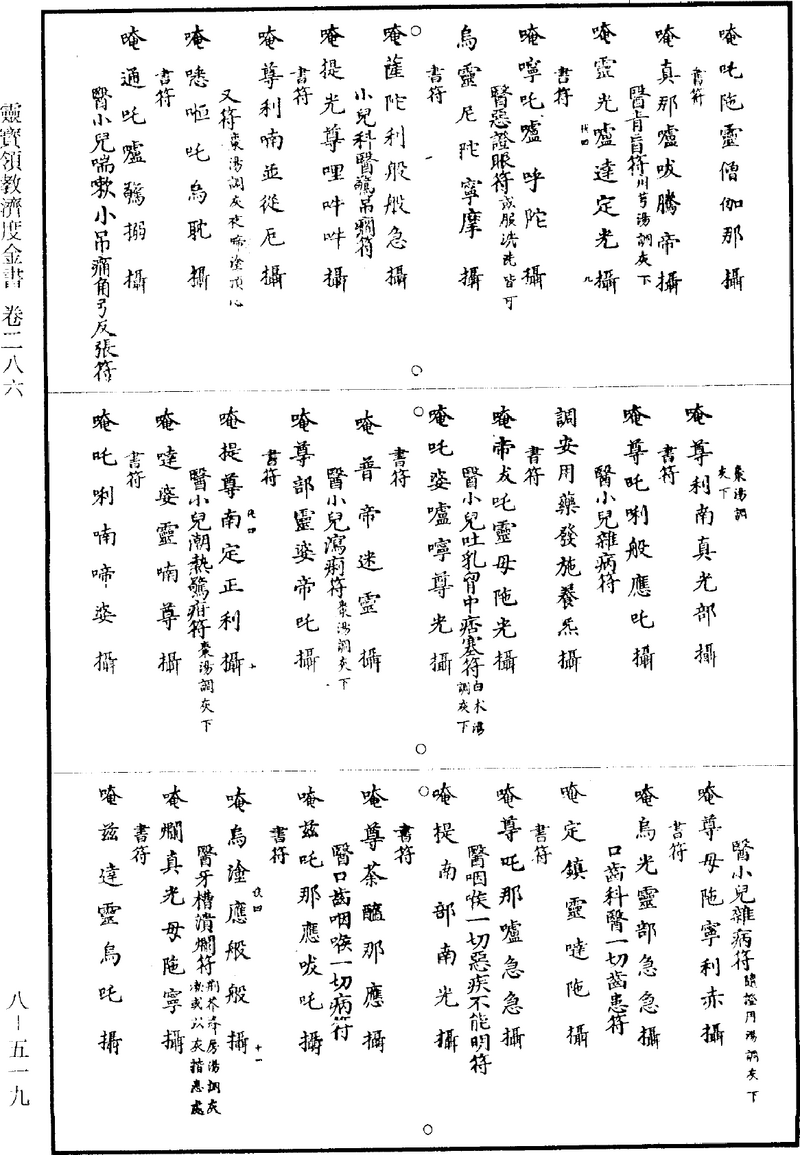 唵吒陁靈僧伽那攝
書符
唵真那嚧㕹騰帝攝
醫青盲符川芎湯調灰下
唵靈光嚧達定光攝
書符
唵嚀吒嚧呼陀攝
醫惡證眼符或服洗洗皆可
烏靈尼陀寧摩攝
書符
唵薩陀利般般急攝
小兒科醫驚吊癇符
唵提光尊哩吽吽攝
書符
唵尊利喃並從厄攝
又符棗湯調灰夜啼塗頂心
唵㗭啞吒烏耽攝
書符
唵通吒嚧鷲搦攝
醫小兒喘嗽小吊痛角弓反張符
棗湯調灰下
唵尊利南真光部攝
書符
唵尊吒唎般應吒攝
醫小兒雜病符
調安用藥發施養炁攝
書符
唵帝犮吒靈母陁光攝
醫小兒吐乳胷中痞塞符白朮湯調灰下
唵吒娑嚧嚀尊光攝
書符
唵普帝迷靈攝
醫小兒瀉痢符棗湯調灰下
唵尊部靈娑帝吒攝
書符
唵提尊南定正利攝
醫小兒潮熱驚疳符棗湯調灰下
唵噠娑靈喃尊攝
書符
唵吒唎喃啼娑攝
醫小兒雜病符隨證用湯調灰下
唵尊母陁寧利赤攝
書符
唵烏光靈部急急攝
口齒科醫一切齒患符
唵定鎮靈噠陁攝
書符
唵尊吒那嚧急急攝
醫咽喉一切惡疾不能明符
唵提南部南光攝
書符
唵尊荼醯那應攝
醫口齒咽喉一切病符
唵茲吒那應㕹吒攝
書符
唵烏塗應般般攝
醫牙槽潰爛符荆芥蜂房湯調灰漱或以灰揩患處
唵爛真光母陁寧攝
書符
唵茲達靈烏吒攝
靈寶領教濟度金書 卷二八六
八－五一九